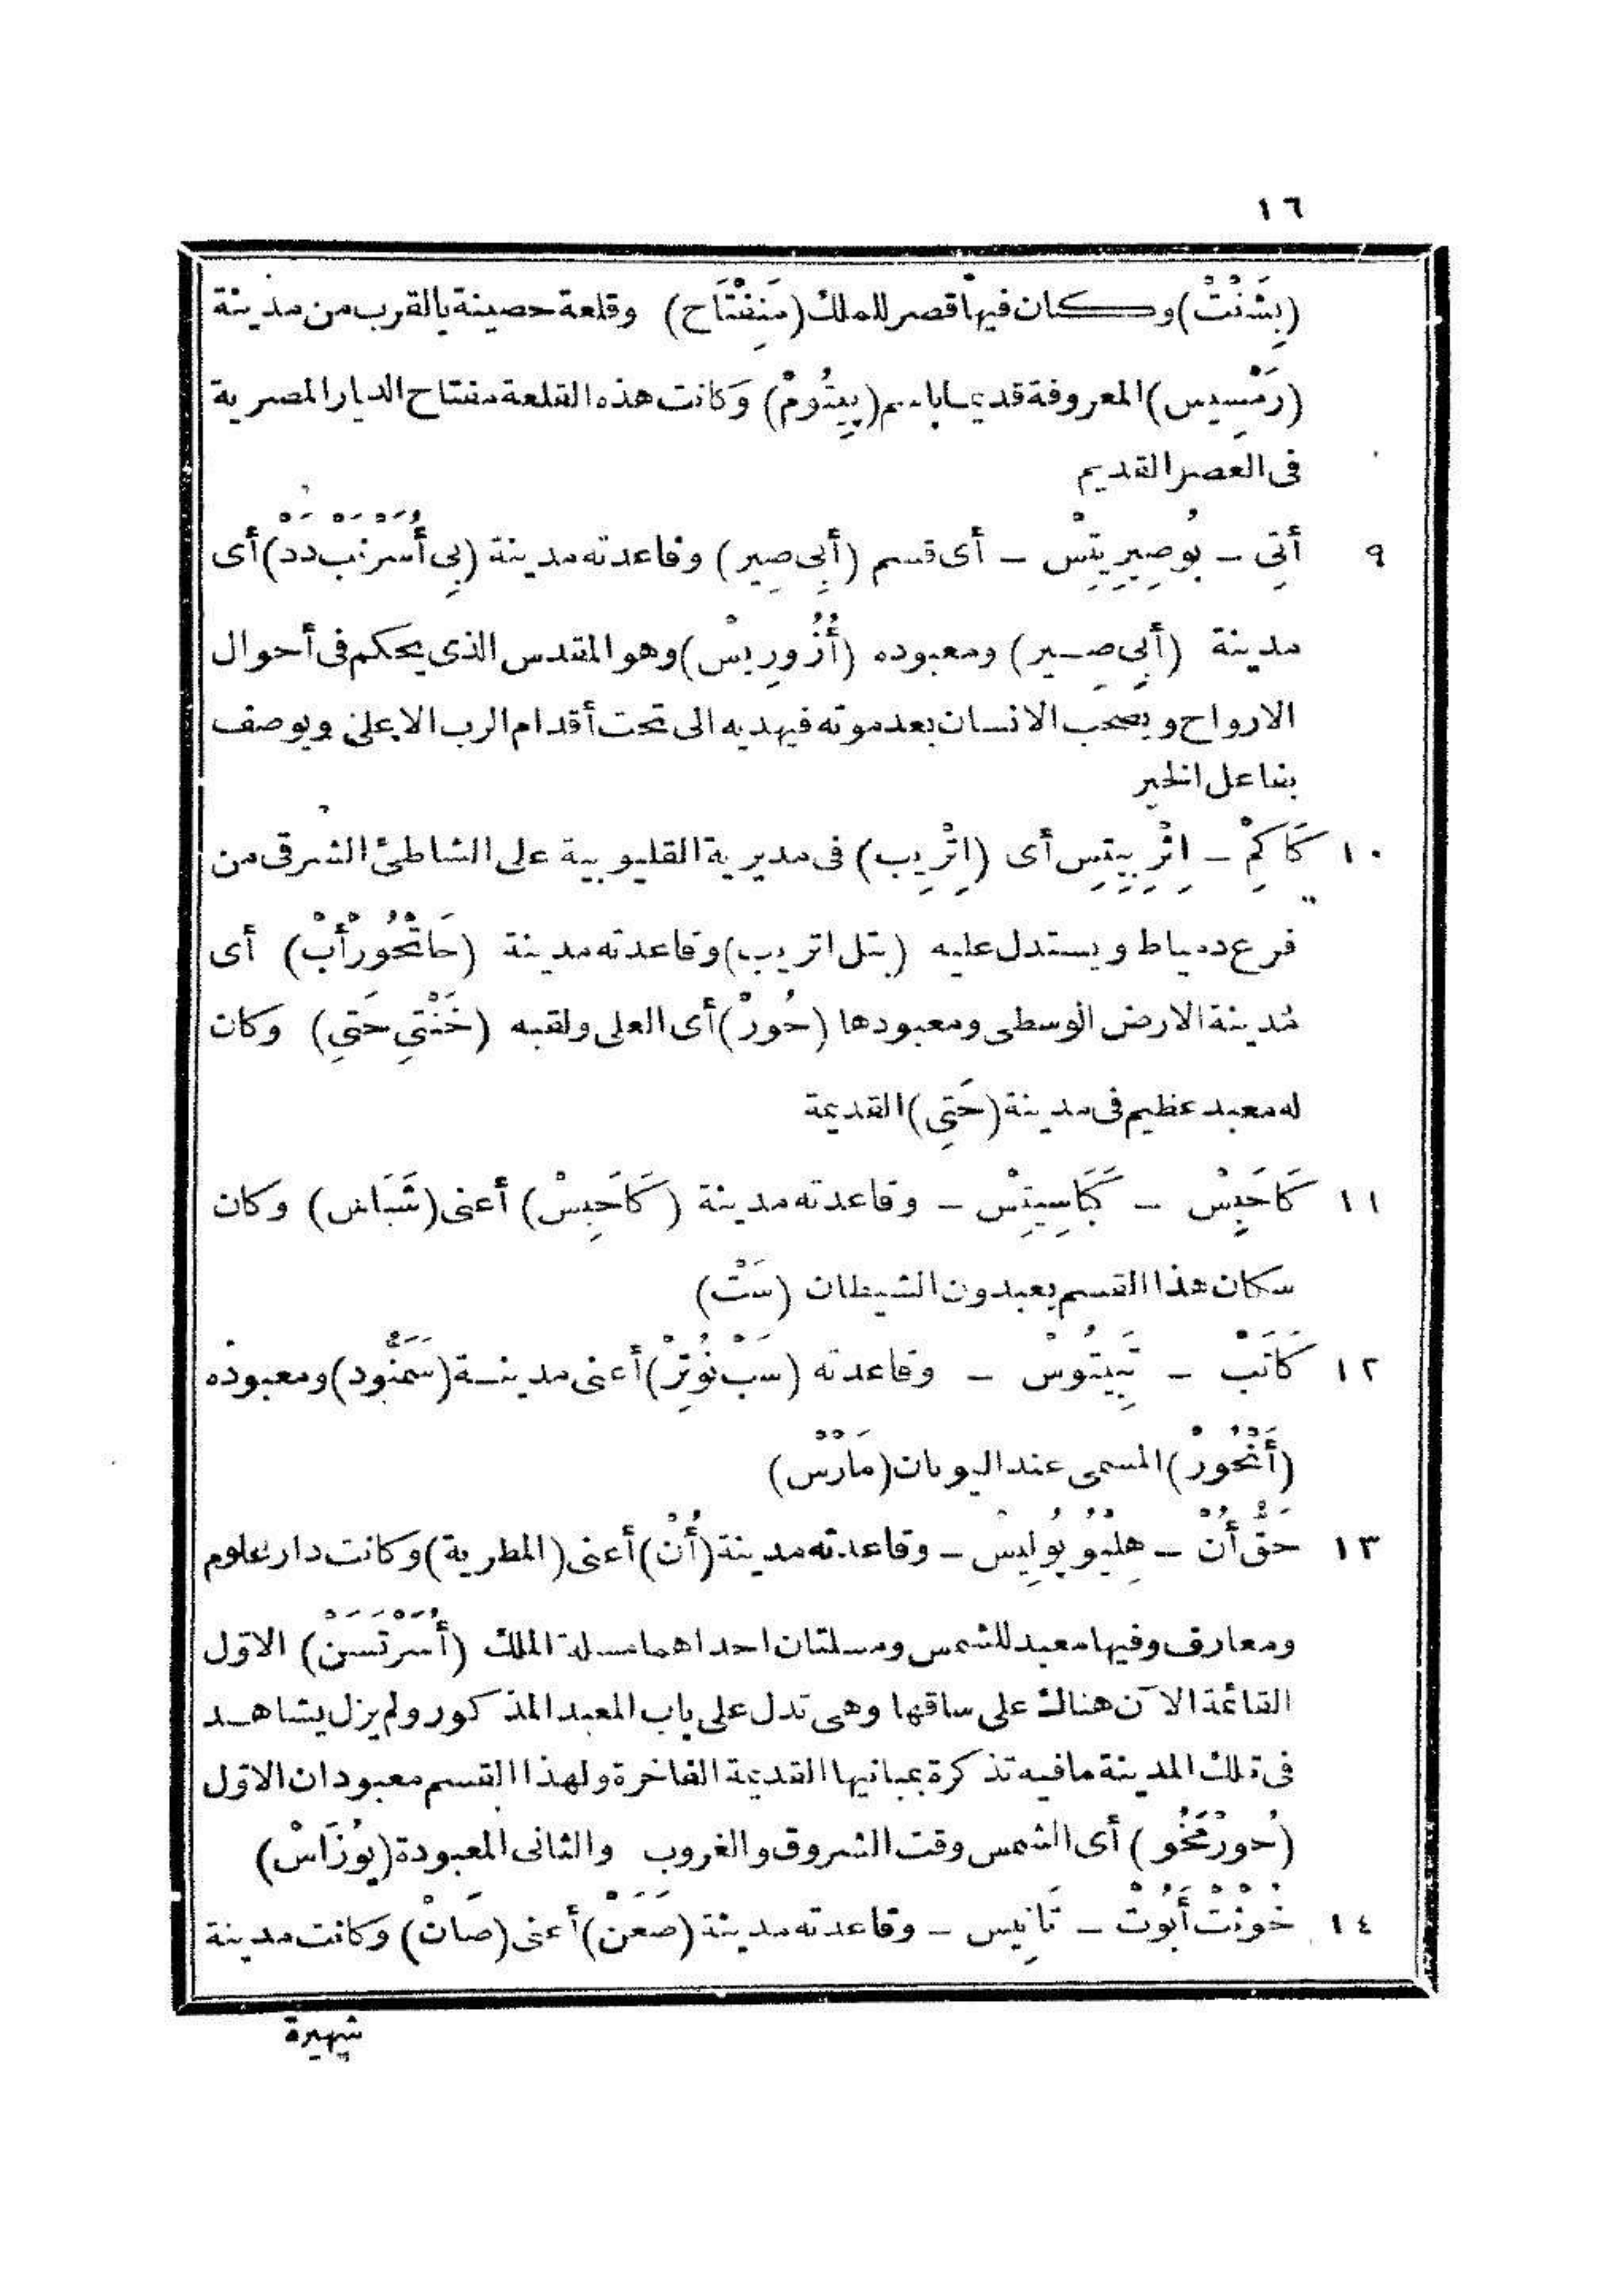 ١٦
(بِشَنْتْ) وكان فيها قصر للملك (مَنِفْتَاح) وقلعة حصينة بالقرب من مدينة
(رَمْسِيس) المعروفة قديما باسم (پِيتُومْ) وكانت هذه القلعة مفتاح الديار المصرية
فى العصر القديم
٩ أتِى – بُوصِيرِيتِسْ – أى قسم (أبِى صِير) وقاعدته مدينة (بِى أُسَرْنَبْ دَدْ) أى
مدينة (أبِى صِير) ومعبوده (أُزُورِيسْ) وهو المقدس الذى يحكم فى أحوال
الارواح ويصحب الانسان بعد موته فيهديه الى تحت أقدام الرب الاعلى ويوصف
بفاعل الخير
١٠ كَاكِمْ – اِتْرِيبِيتِس أى (اِتْرِيب) فى مديرية القليوبية على الشاطئ الشرقى من
فرع دمياط ويستدل عليه (بتل اتريب) وقاعدته مدينة (حَاتْحُورْأَبْ) أى
مدينة الارض الوسطى ومعبودها (حُورْ) أى العلى ولقبه (خَنْتِى حَتِى) وكان
له معبد عظيم فى مدينة (حَتِى) القديمة
١١ كَاحَبِسْ – كَبَاسِيتِسْ – وقاعدته مدينة (كَاحَبِسْ) أعنى (شَبَاس) وكان
سكان هذا القسم يعبدون الشيطان (سَتْ)
١٢ كَاتَبْ – تَبِيتُوسْ – وقاعدته (سَبْ نُوتِرْ) أعنى مدينة (سَمَنُّود) ومعبوده
(أَنْحُورْ) المسمى عند اليونان (مَارْسْ)
١٣ حَقْ أُنْ – هِلْيُو پُولِيسْ – وقاعدته مدينة (أُنْ) أعنى (المطرية) وكانت دار علوم
ومعارف وفيها معبد للشمس ومسلتان احداهما مسلة الملك (أُسَرْتَسَنْ) الاوّل
القائمة الآن هناك على ساقها وهى تدل على باب المعبد المذكور ولم يزل يشاهد
فى تلك المدينة مافيه تذكرة بمبانيها القديمة الفاخرة ولهذا القسم معبودان الاوّل
(حُورْمَخُو) أى الشمس وقت الشروق والغروب والثانى المعبودة (يُوزَاسْ)
١٤ خُونْتْ أَبُوتْ – تَانِيس – وقاعدته مدينة (صَعَنْ) أعنى (صَانْ) وكانت مدينة
شهيرة